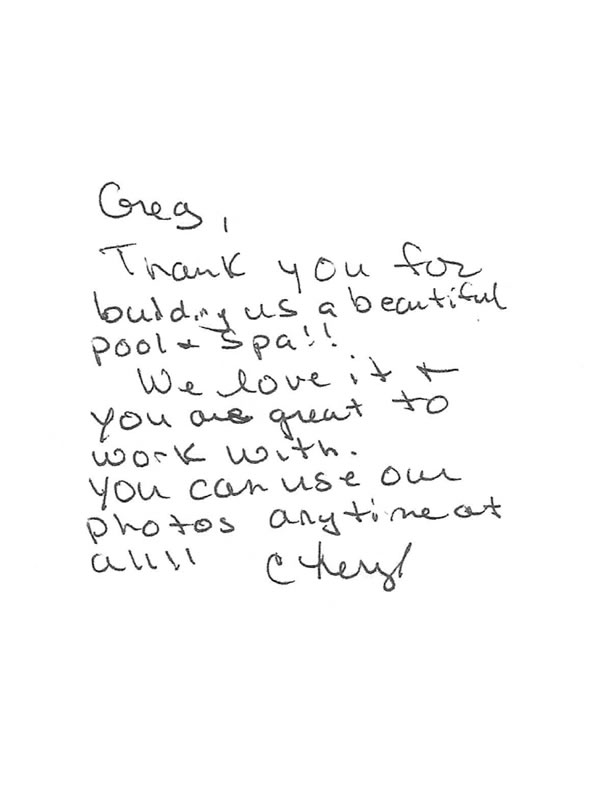 Greg,
Thank you for
building us a beautiful
pool + Spa!!
We love it +
you are great to
work with.
You can use our
photos anytime at
all!!
Cheryl